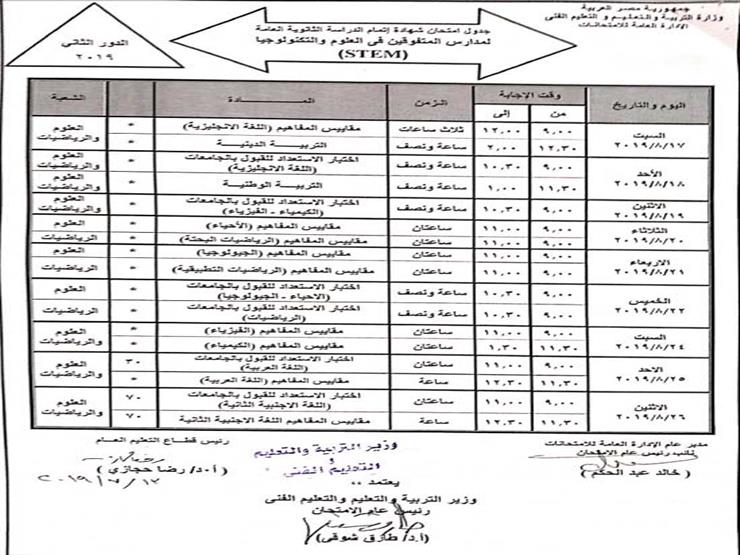 جمهورية مصر العربية
وزارة التربية والتعليم و التعليم الفنى
الإدارة العامة للامتحانات
جدول امتحان شهادة إتمام الدراسة الثانوية العامة
لمدارس المتفوقين فى العلوم والتكنولوجيا
(STEM)
الدور الثاني
٢٠١٩
اليوم والتاريخ وقت الإجابة الزمن المادة الشعبة
من إلى
السبت ٢٠١٩/٨/١٧ ٩,٠٠ ١٢,٠٠ ثلاث ساعات مقاييس المفاهيم (اللغة الانجليزية) * العلوم والرياضيات
١٢,٣٠ ٢,٠٠ ساعة ونصف التربية الدينية *
الأحد ٢٠١٩/٨/١٨ ٩,٠٠ ١٠,٣٠ ساعة ونصف اختبار الاستعداد للقبول بالجامعات (اللغة الانجليزية) * العلوم والرياضيات
١١,٣٠ ١,٠٠ ساعة ونصف التربية الوطنية *
الاثنين ٢٠١٩/٨/١٩ ٩,٠٠ ١٠,٣٠ ساعة ونصف اختبار الاستعداد للقبول بالجامعات (الكيمياء - الفيزياء) * العلوم والرياضيات
الثلاثاء ٢٠١٩/٨/٢٠ ٩,٠٠ ١١,٠٠ ساعتان مقاييس المفاهيم (الأحياء) * العلوم
٩,٠٠ ١١,٠٠ ساعتان مقاييس المفاهيم (الرياضيات البحتة) * الرياضيات
الاربعاء ٢٠١٩/٨/٢١ ٩,٠٠ ١١,٠٠ ساعتان مقاييس المفاهيم (الجيولوجيا) * العلوم
٩,٠٠ ١١,٠٠ ساعتان مقاييس المفاهيم (الرياضيات التطبيقية) * الرياضيات
الخميس ٢٠١٩/٨/٢٢ ٩,٠٠ ١٠,٣٠ ساعة ونصف اختبار الاستعداد للقبول بالجامعات (الاحياء - الجيولوجيا) * العلوم
٩,٠٠ ١٠,٣٠ ساعة ونصف اختبار الاستعداد للقبول بالجامعات (الرياضيات) * الرياضيات
السبت ٢٠١٩/٨/٢٤ ٩,٠٠ ١١,٠٠ ساعتان مقاييس المفاهيم (الفيزياء) * العلوم والرياضيات
١١,٣٠ ١,٣٠ ساعتان مقاييس المفاهيم (الكيمياء) *
الاحد ٢٠١٩/٨/٢٥ ٩,٠٠ ١١,٠٠ ساعتان اختبار الاستعداد للقبول بالجامعات (اللغة العربية) ٣٠ العلوم والرياضيات
١١,٣٠ ١٢,٣٠ ساعة مقاييس المفاهيم (اللغة العربية) *
الاثنين ٢٠١٩/٨/٢٦ ٩,٠٠ ١١,٠٠ ساعتان اختبار الاستعداد للقبول بالجامعات (اللغة الاجنبية الثانية) ٧٠ العلوم والرياضيات
١١,٣٠ ١٢,٣٠ ساعة مقاييس المفاهيم اللغة الاجنبية الثانية ٧٠
مدير عام الإدارة العامة للامتحانات
نائب رئيس عام الامتحان
( خالد عبد الحكم )
وزير التربية والتعليم
و
التعليم الفنى
يعتمد ،،
وزير التربية والتعليم والتعليم الفنى
رئيس عام الامتحان
(أ.د/ طارق شوقى)
رئيس قطاع التعليم العام
(أ.د/ رضا حجازي )
٢٠١٩/٧/١٢